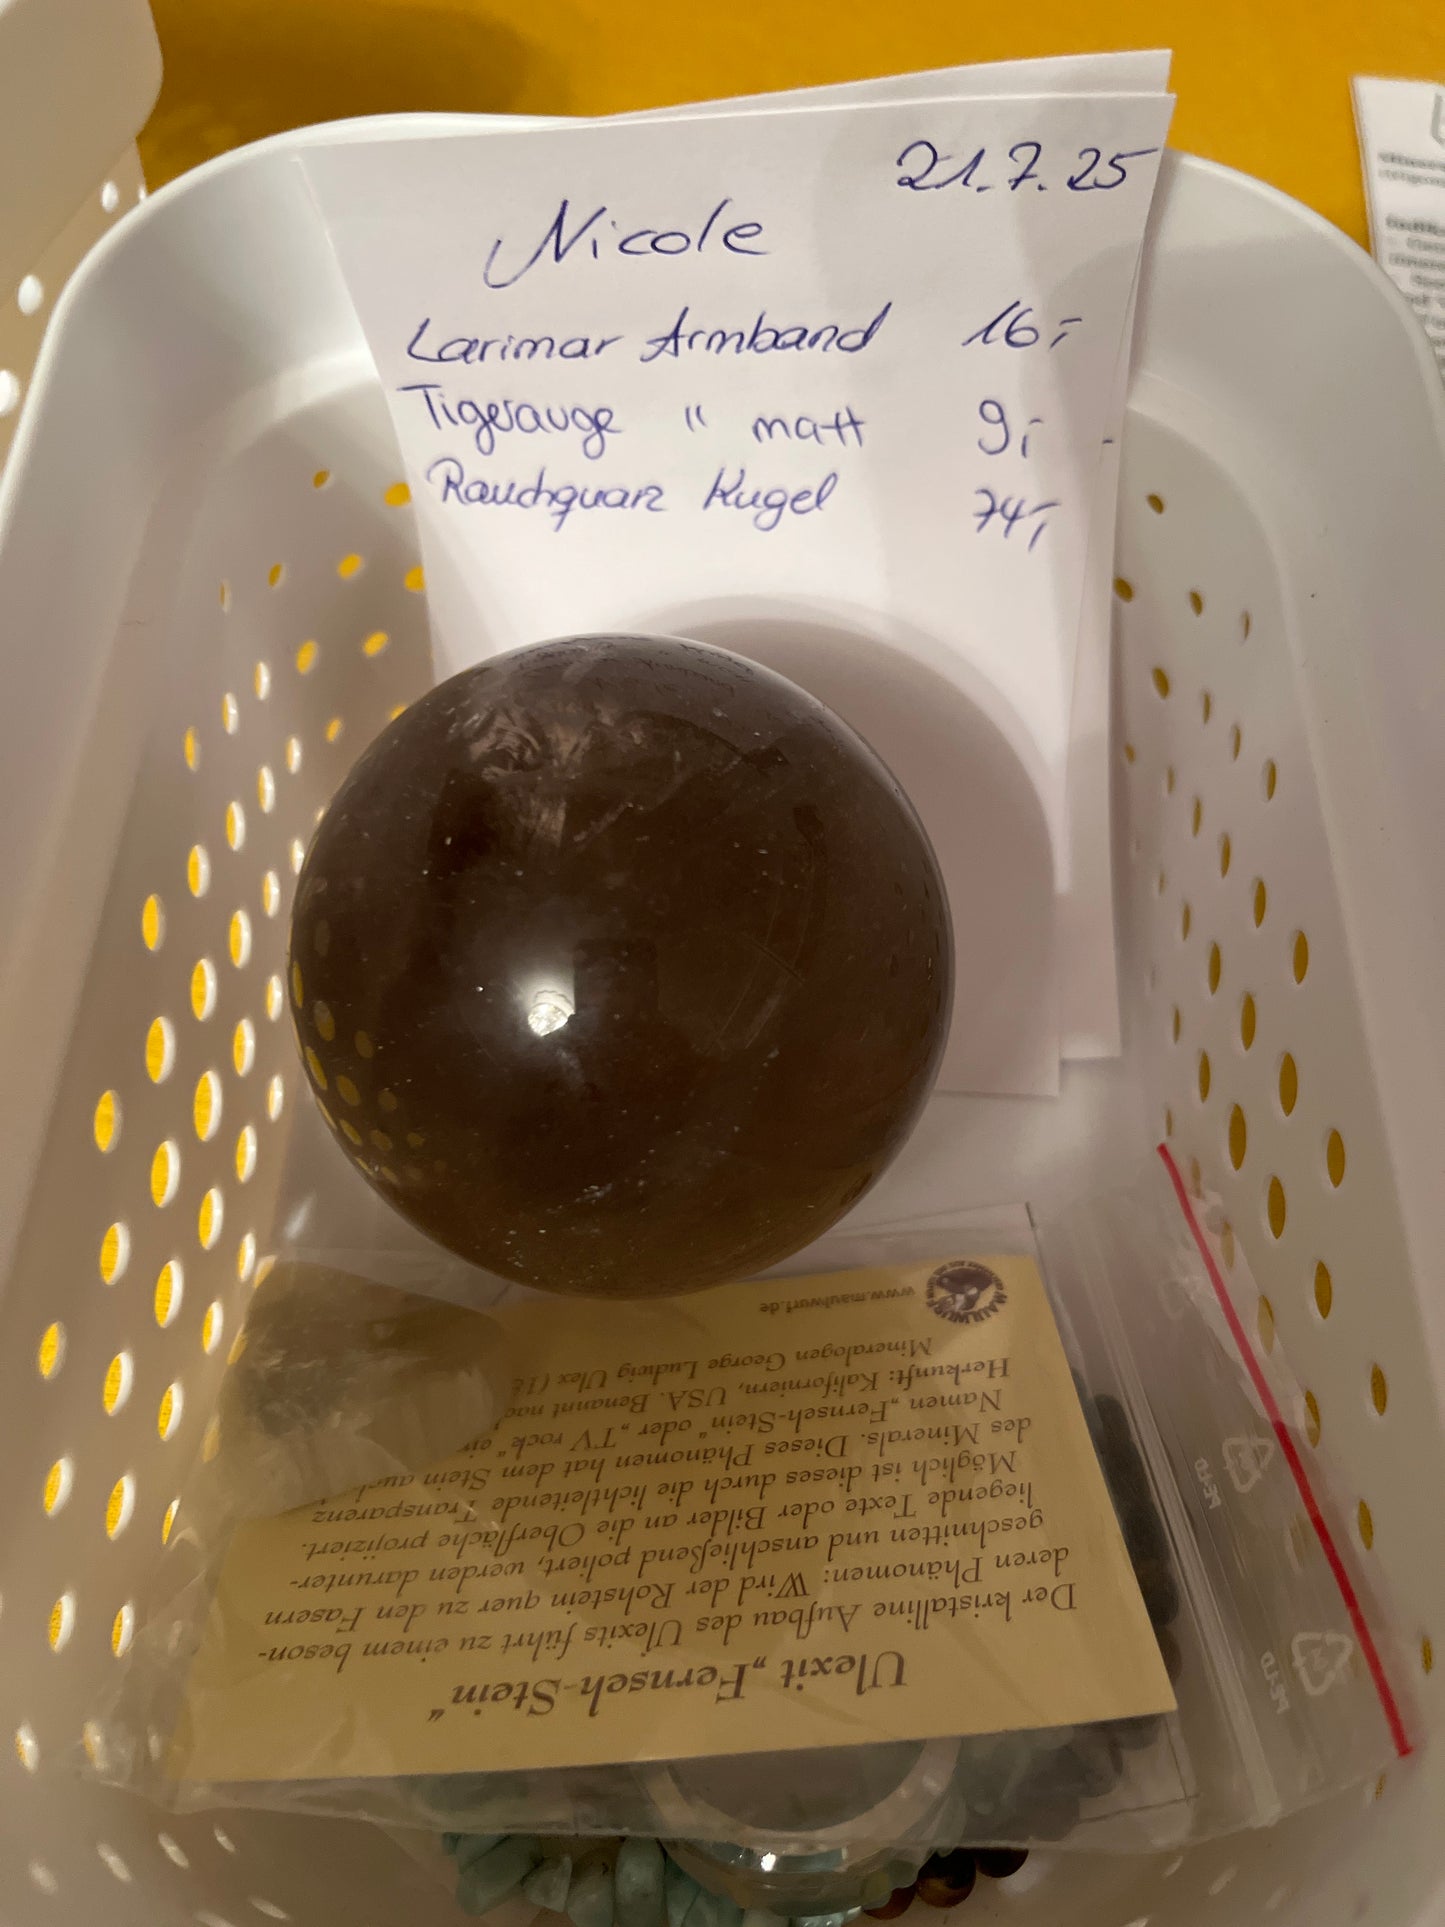 21.7.25
Nicole
Larimar Armband 16,-
Tigerauge " matt 9,-
Rauchquarz Kugel 74,-
Ulexit „Fernseh-Stein“
Der kristalline Aufbau des Ulexits führt zu einem beson-
deren Phänomen: Wird der Rohstein quer zu den Fasern
geschnitten und anschließend poliert, werden darunter-
liegende Texte oder Bilder an die Oberfläche projiziert.
Möglich ist dieses durch die lichtleitende Transparenz
des Minerals. Dieses Phänomen hat dem Stein auch
Namen „Fernseh-Stein“ oder „TV rock“
Herkunft: Kaliforniern, USA. Benannt nac
Mineralogen George Ludwig Ulex (18
www.maulwurf.de
MAULWURF